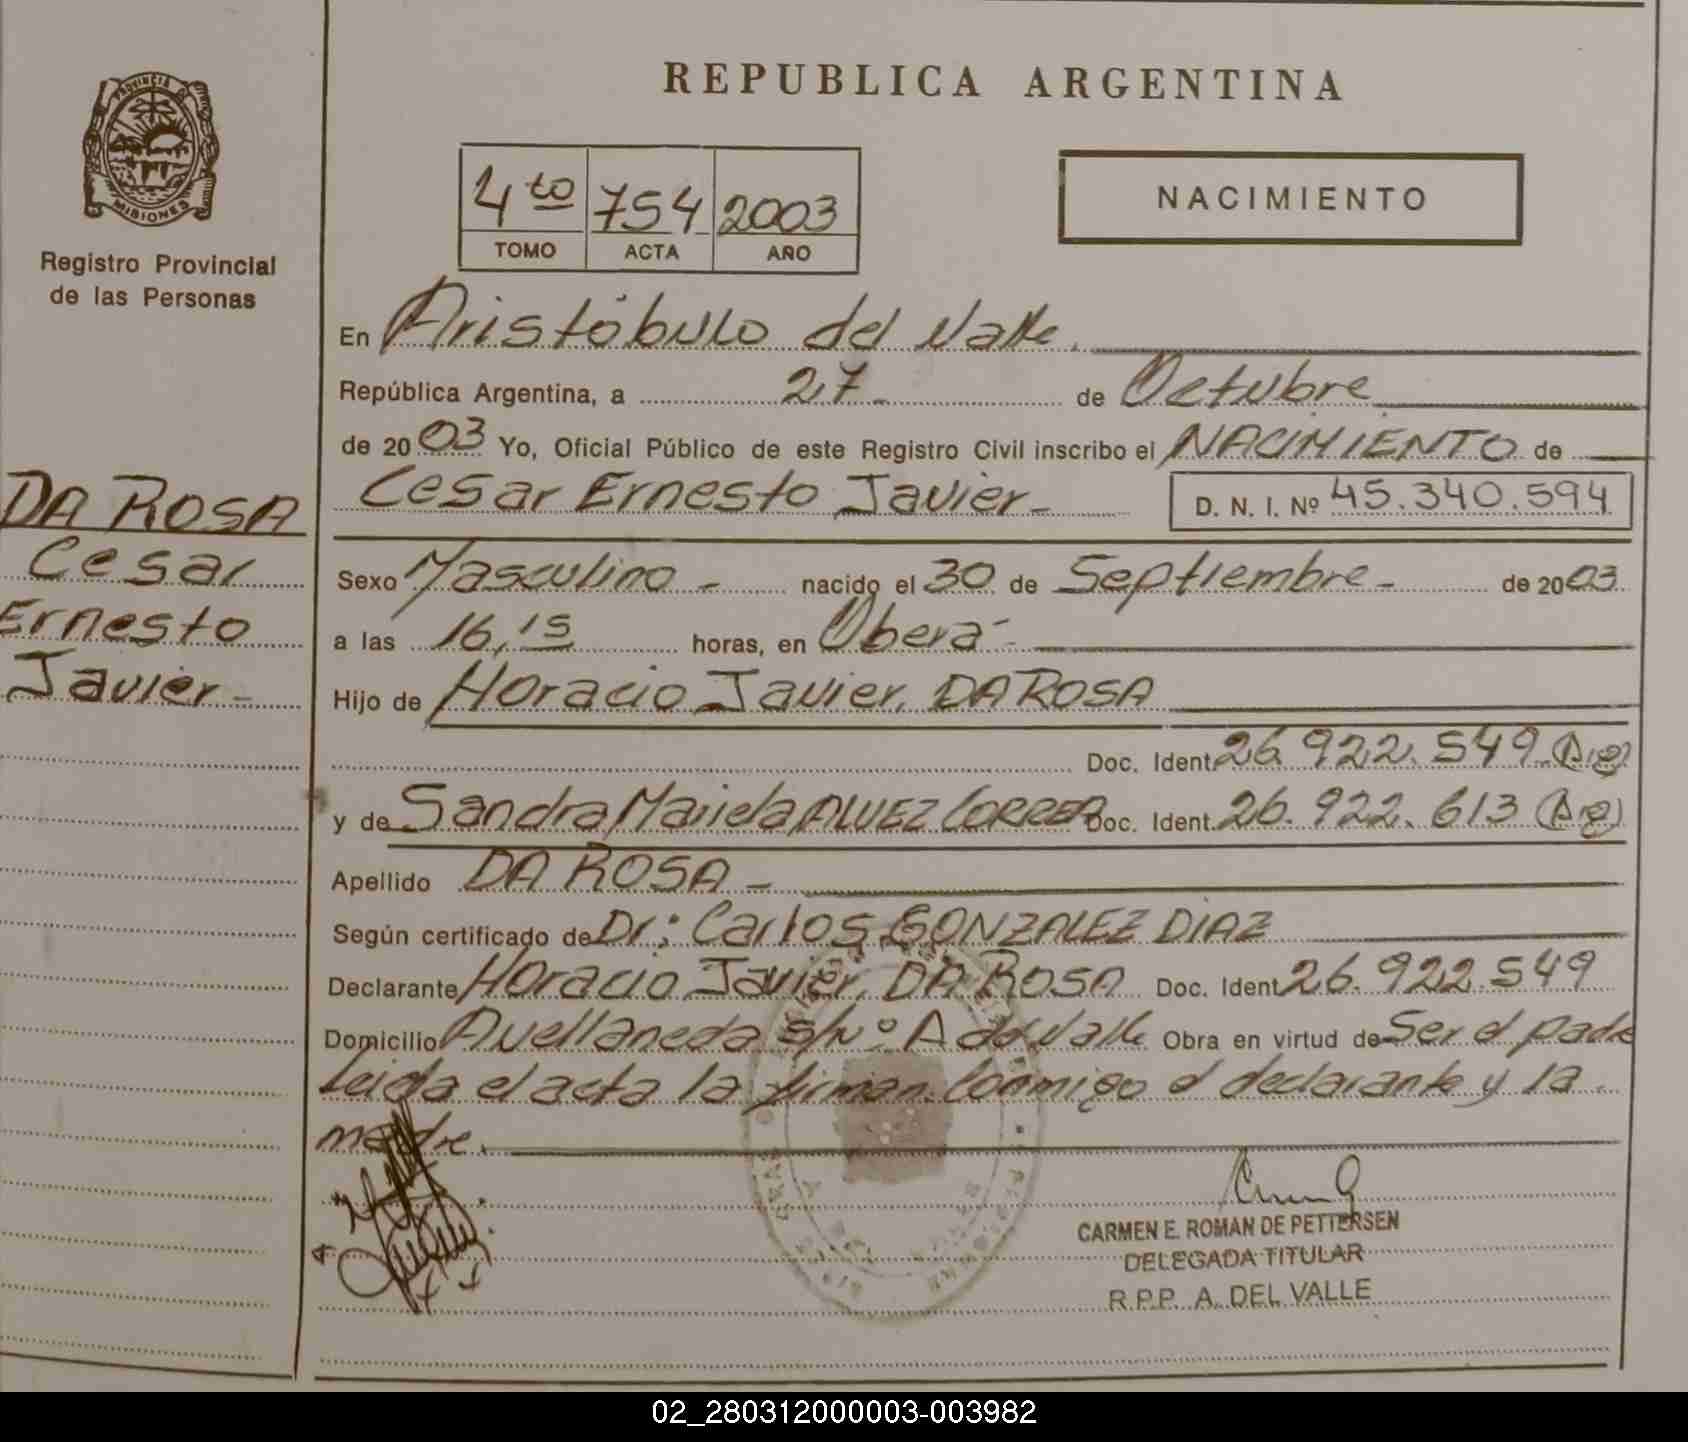 REPUBLICA ARGENTINA
PROVINCIA DE
MISIONES
Registro Provincial
de las Personas
4to 754 2003
TOMO ACTA AÑO
NACIMIENTO
En Aristóbulo del Valle.
República Argentina, a 27 de Octubre
de 2003 Yo, Oficial Público de este Registro Civil inscribo el NACIMIENTO de
Cesar Ernesto Javier- D. N. I. Nº 45.340.594
DA ROSA
Cesar
Ernesto
Javier-
Sexo Masculino - nacido el 30 de Septiembre - de 2003
a las 16,15 horas, en Oberá -
Hijo de Horacio Javier, DA ROSA
Doc. Ident. 26.922.549 (Arg)
y de Sandra Mariela ALVEZ CORREA Doc. Ident. 26.922.613 (Arg)
Apellido DA ROSA -
Según certificado de Dr: Carlos GONZALEZ DIAZ
Declarante Horacio Javier, DA ROSA Doc. Ident. 26.922.549
Domicilio Avellaneda s/Nº A ddel Valle Obra en virtud de Ser el padre
Leida el acta la firman conmigo el declarante y la
madre.
CARMEN E. ROMAN DE PETTERSEN
DELEGADA TITULAR
R.P.P. A. DEL VALLE
02_280312000003-003982